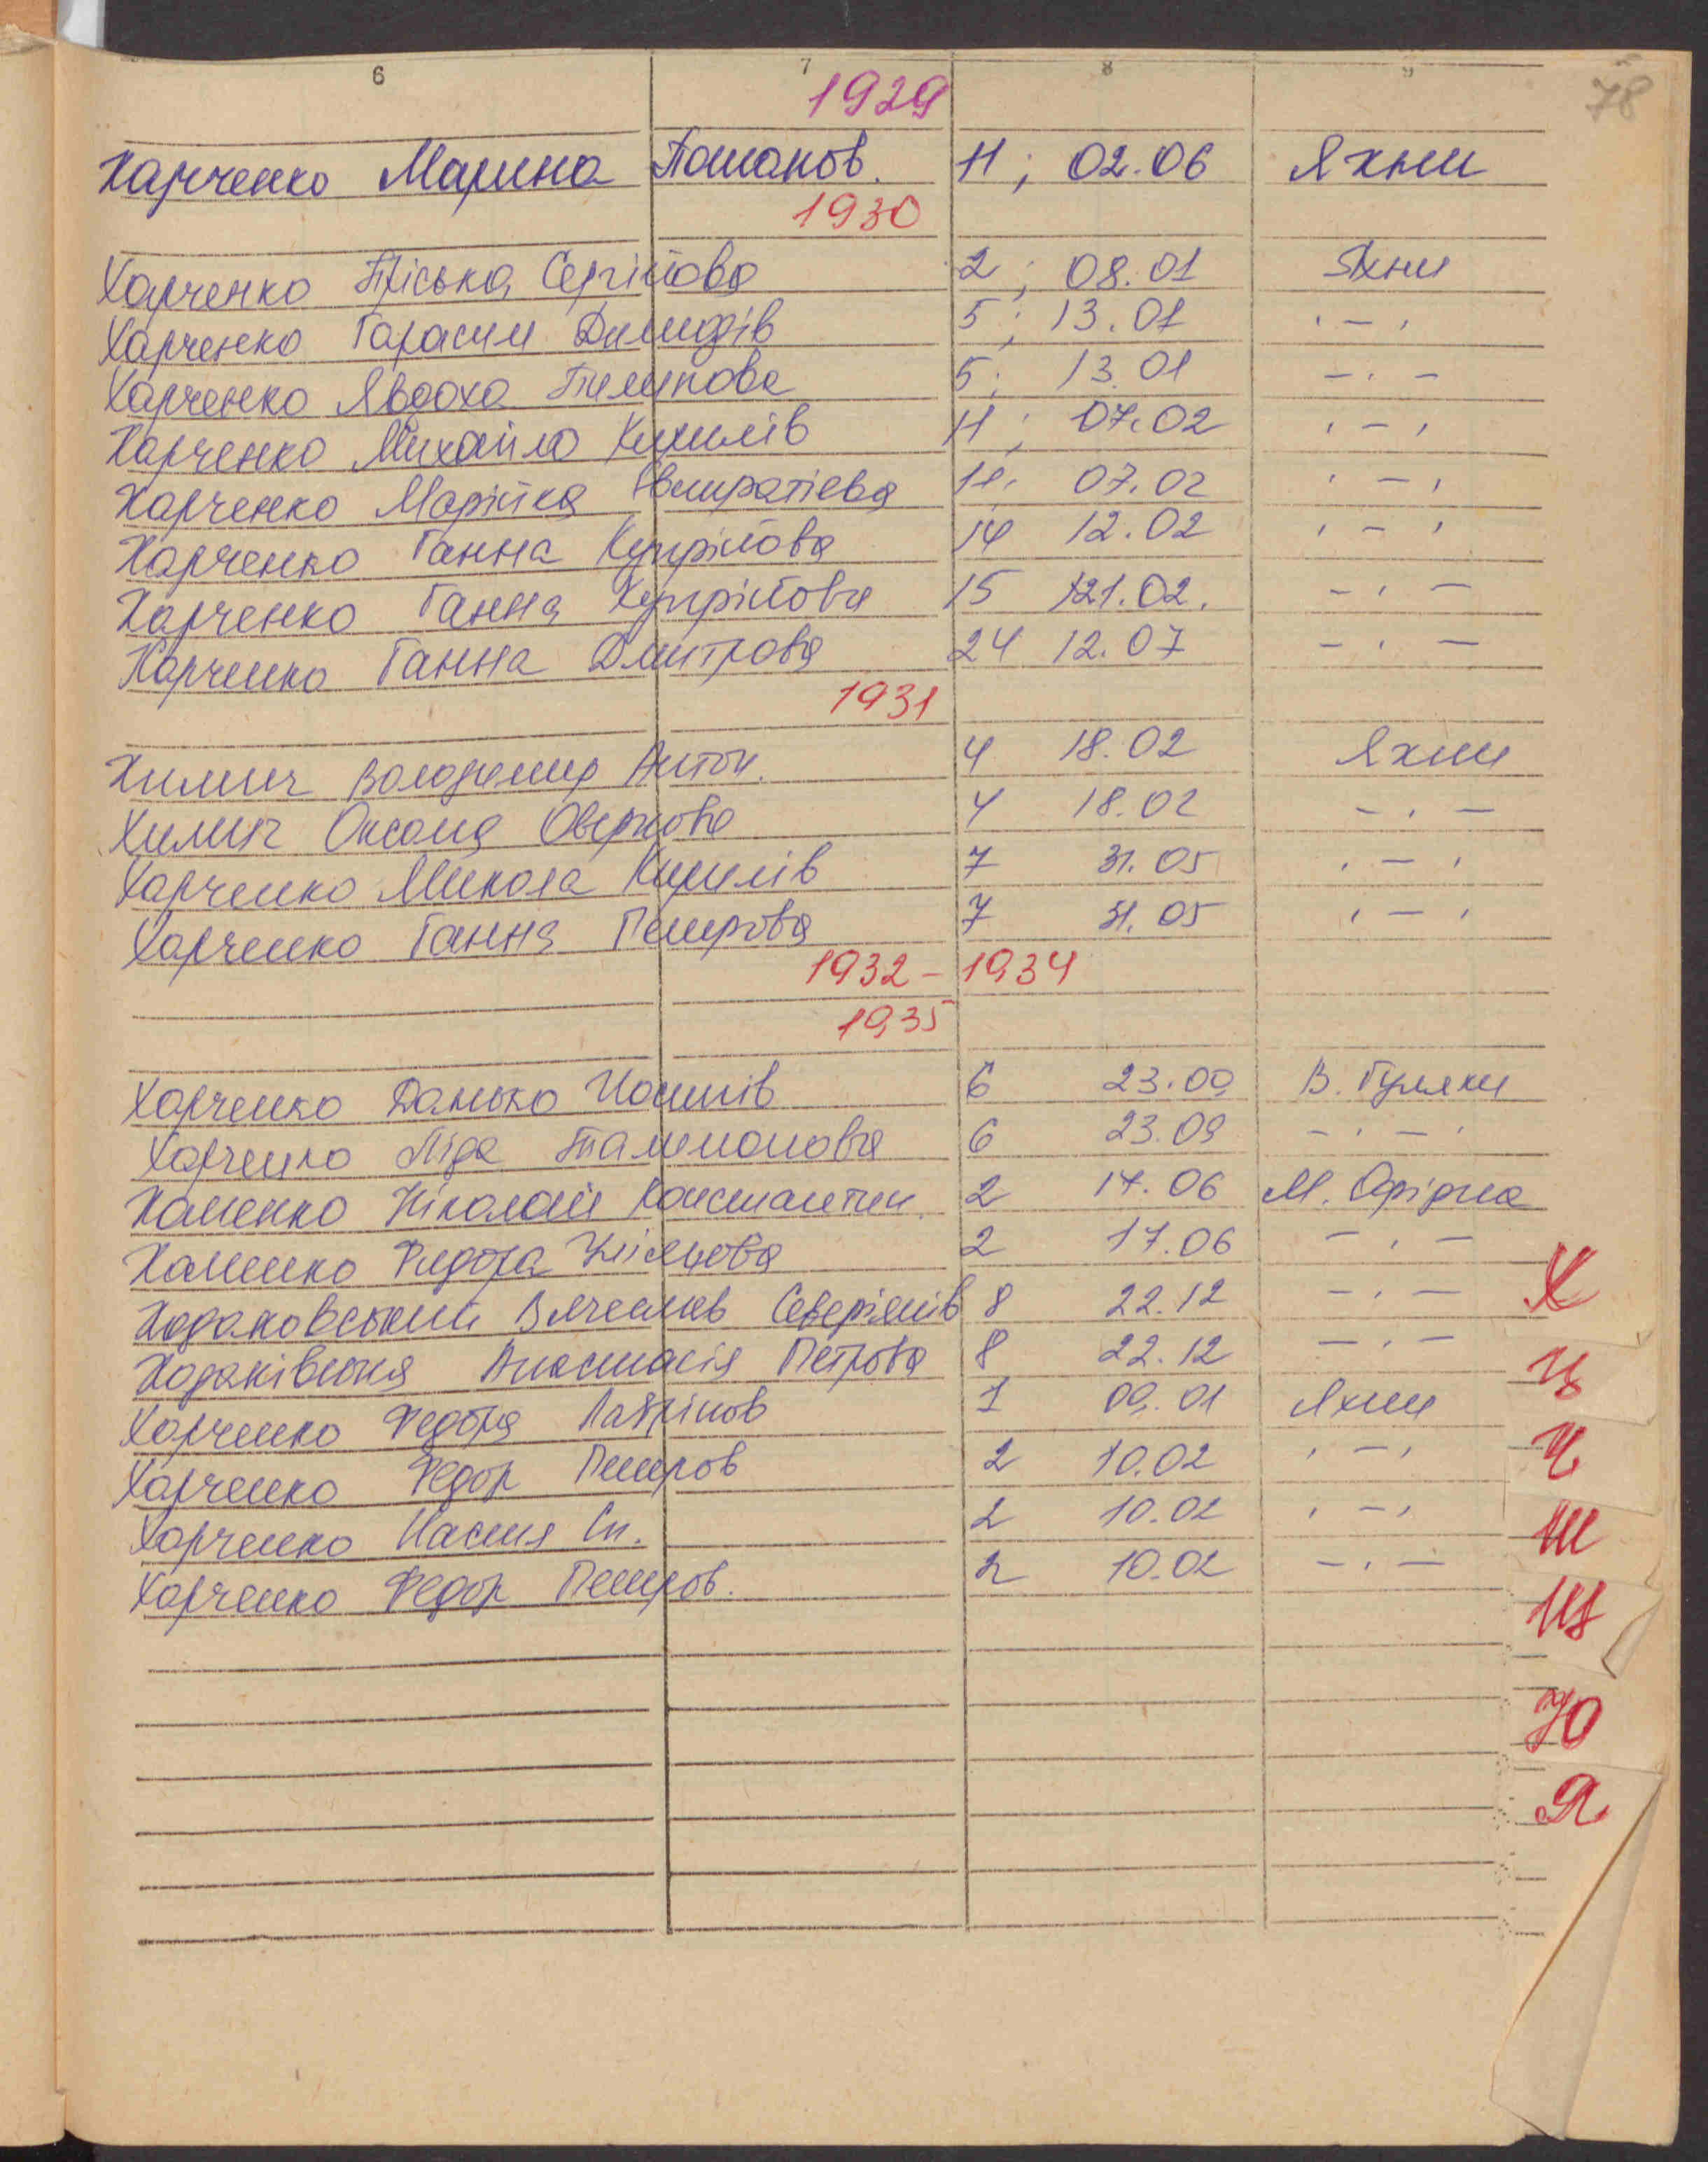 6 7 8 9 78
1929
Харченко Марина Поманов. 11; 02.06 Яхни
1930
Харченко Пріська Сергійова 2; 08.01 Яхни
Харченко Гарасим Демидів 5; 13.01 ' — '
Харченко Явдоха Пилипова 5; 13.01 — ' —
Харченко Михайло Кирилів 11; 07.02 ' — '
Харченко Марійка 11. 07.02 ' — '
Харченко Ганна Купрійова 14 12.02 ' — '
Харченко Ганна Купрійова 15 121.02. — ' —
Харченко Ганна Дмитрова 24 12.07 — ' —
1931
Химич Володимир Антон. 4 18.02 Яхни
Химич Оксана Оверкова 4 18.02 — ' —
Харченко Микола Кирилів 7 31.05 ' — '
Харченко Ганна Петрова 7 31.05 ' — '
1932 – 1934
1935
Харченко Данько Йосипів 6 23.09 В. Гуляки
Харченко Ліда 6 23.09 — ' — '
Хоменко Ніколай Константин. 2 17.06 М.
Хоменко Федора 2 17.06 — ' —
Ходаковський Вячеслав Северіянів 8 22.12 — ' —
Ходаківська Анастасія Петрова 8 22.12 — ' —
Харченко Федора 1 09.01 Яхни
Харченко Федор Петров 2 10.02 ' — '
Харченко Настя Сп. 2 10.02 ' — '
Харченко Федор Петров. 2 10.02 — ' —
Х
Ц
Ч
Ш
Щ
Ю
Я